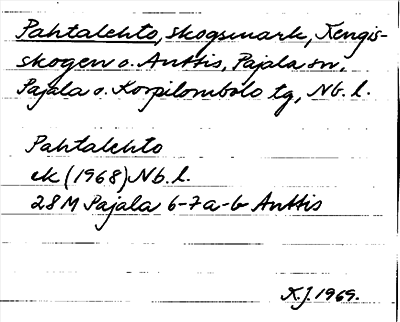 Pahtalehto, skogsmark, Kengis-
skogen o. Anttis, Pajala sn,
Pajala o. Korpilombolo tg, Nb. l.
Pahtalehto
ek (1968) Nb. l.
28M Pajala 6-7a-b Anttis
K.J. 1969.